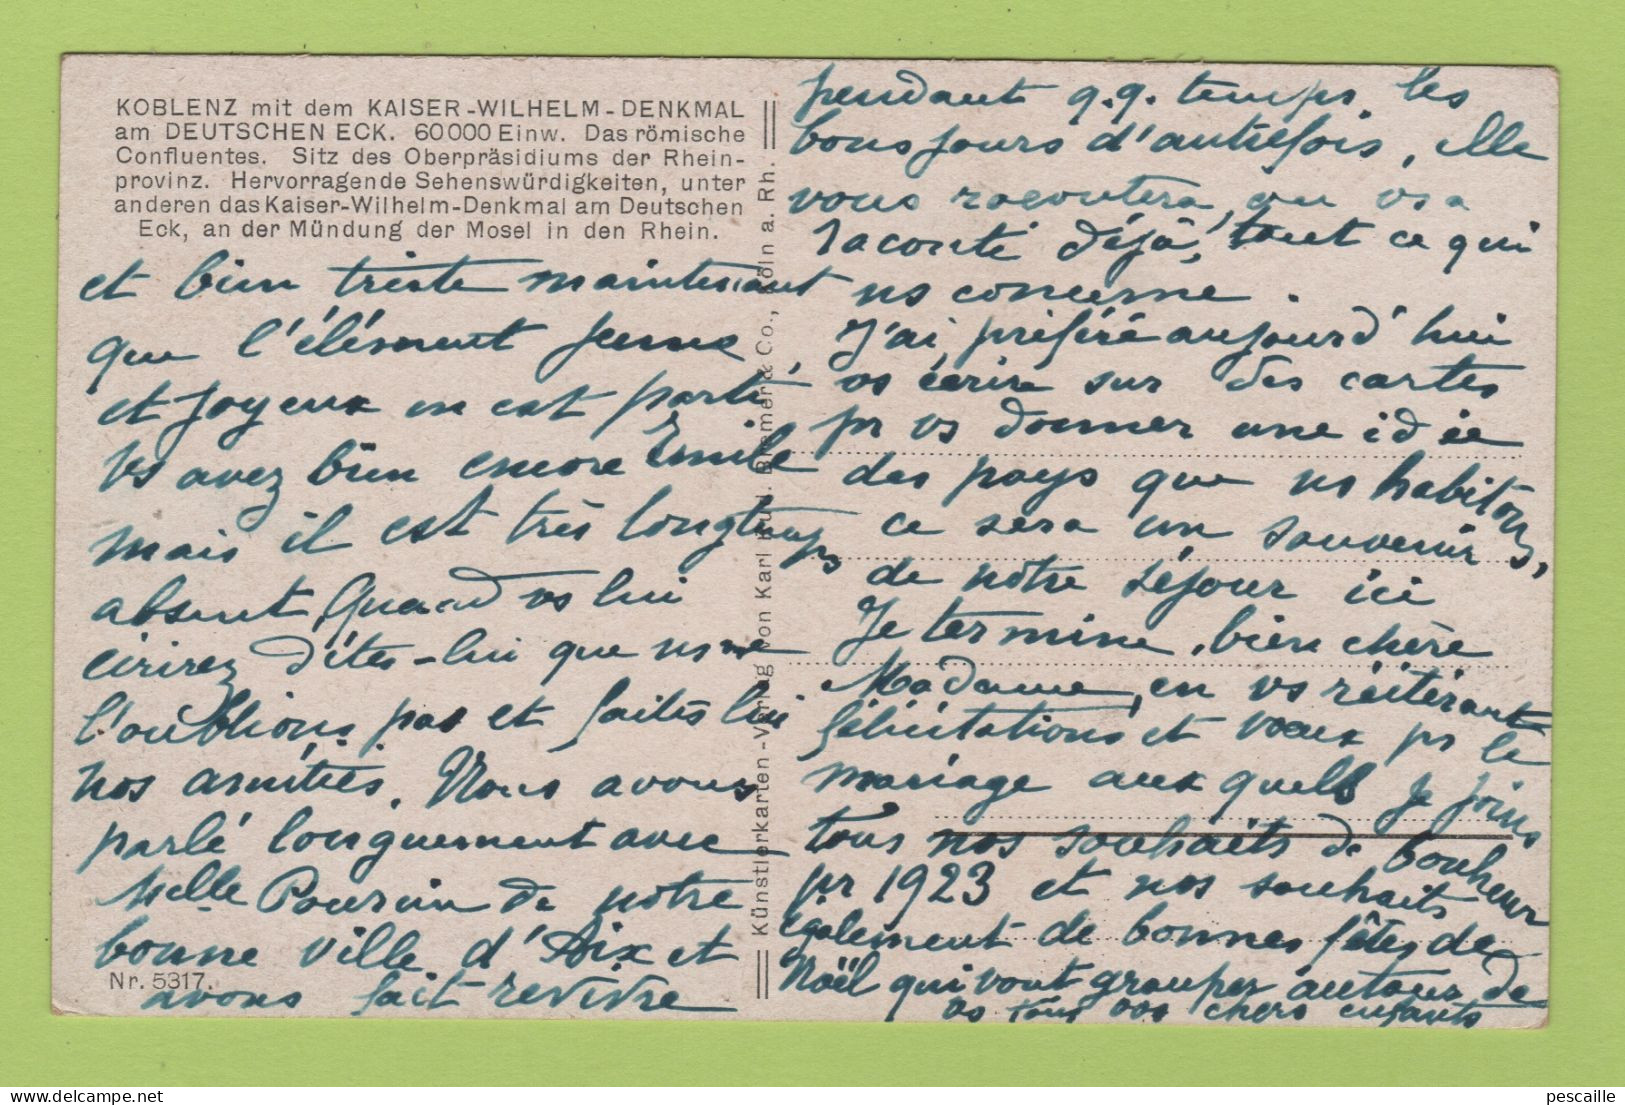 KOBLENZ mit dem KAISER-WILHELM-DENKMAL
am DEUTSCHEN ECK. 60000 Einw. Das römische
Confluentes. Sitz des Oberpräsidiums der Rhein-
provinz. Hervorragende Sehenswürdigkeiten, unter
anderen das Kaiser-Wilhelm-Denkmal am Deutschen
Eck, an der Mündung der Mosel in den Rhein.
et bien triste maintenant
que l'élément jeune
et joyeux en est parti.
Vs avez bien encore Emile
mais il est très longtemps
absent. Quand vs lui
écrirez dites-lui que ns ne
l'oublions pas et faites lui
nos amitiés. Nous avons
parlé longuement avec
Melle Poursin de notre
bonne ville d'Aix et
avons fait revivre
Nr. 5317.
Künstlerkarten-Verlag von Karl Rud. Bremer & Co., Köln a. Rh.
pendant q.q. temps les
bons jours d'autrefois, elle
vous racontera, ou vs a
raconté déjà, tout ce qui
ns concerne.
J'ai préféré aujourd'hui
vs écrire sur des cartes
pr vs donner une idée
des pays que ns habitons,
ce sera un souvenir
de notre séjour ici
Je termine, bien chère
Madame, en vs réitérant
félicitations et voeux pr le
mariage aux quels je joins
tous nos souhaits de bonheur
pr 1923 et nos souhaits
également de bonnes fêtes de
Noël qui vont grouper autour de
vs tous vos chers enfants
pescaille